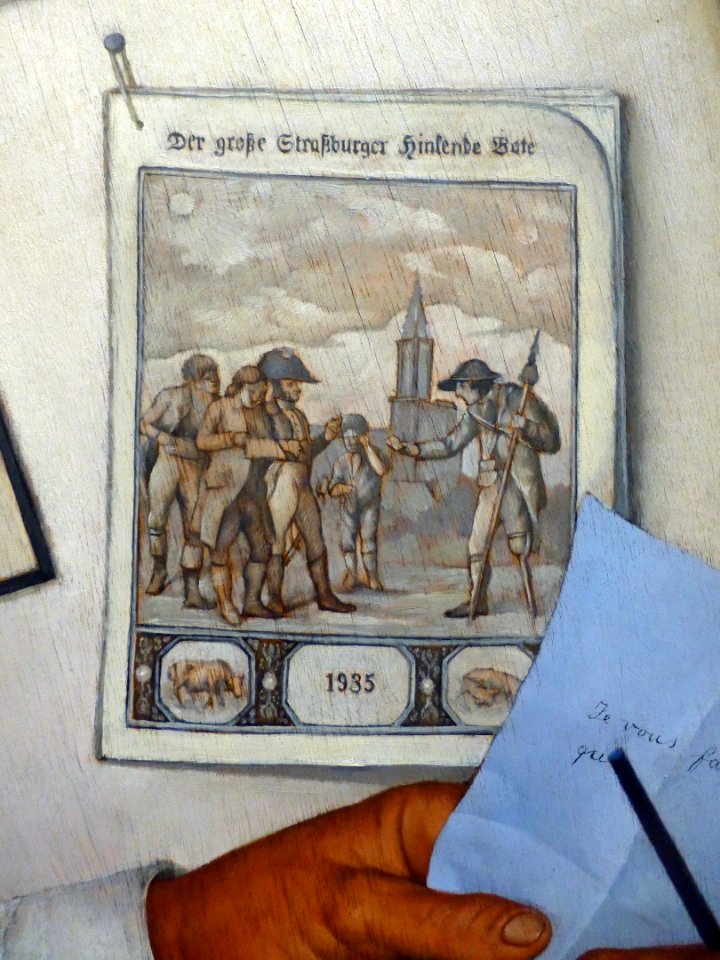 Der große Straßburger Hinkende Bote
1935
Je vous
que fa